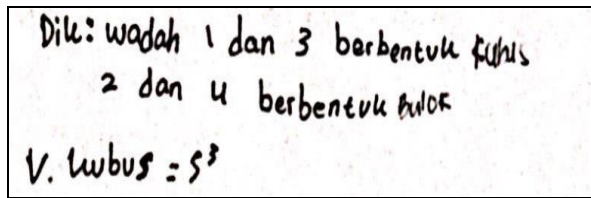 Dik: wadah 1 dan 3 berbentuk kubus
2 dan 4 berbentuk Balok
V. kubus = s³